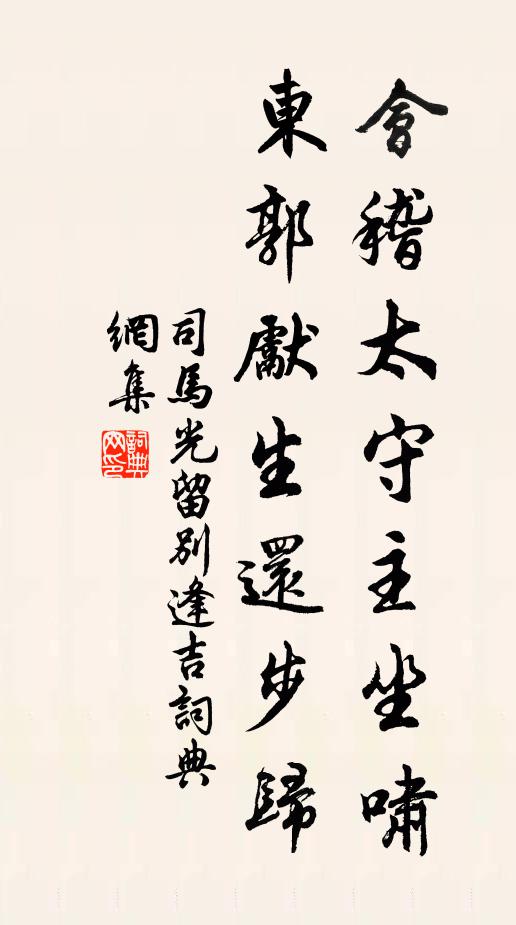 會稽太守主坐嘯
東郭獻生還步歸
司馬光留別逢吉詞典
網集
詞典
网印